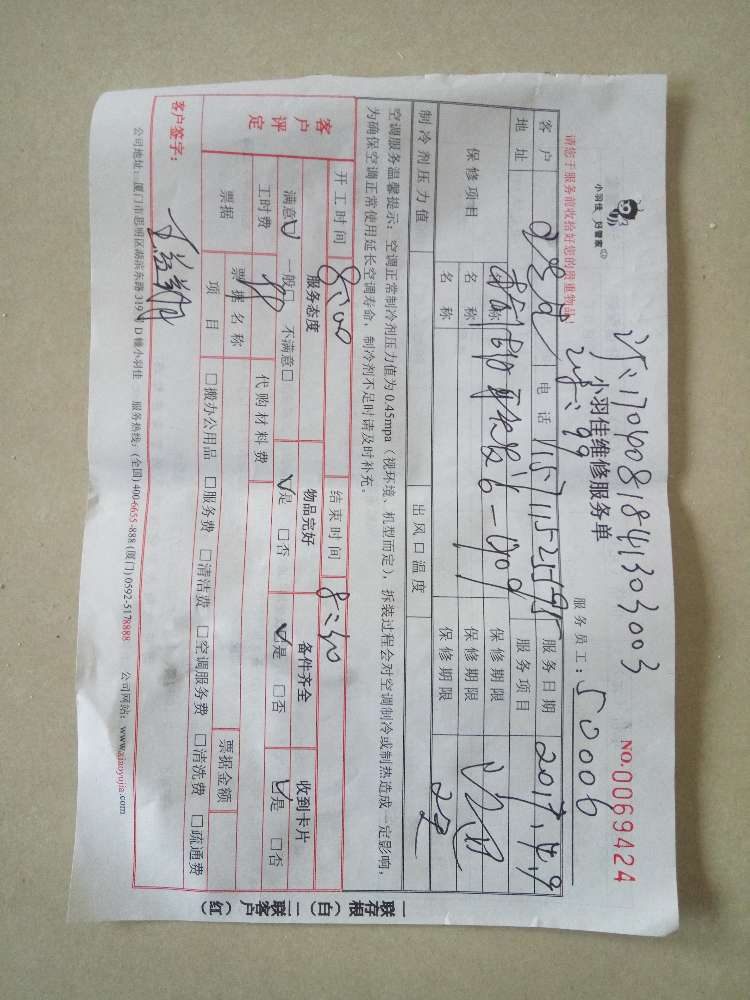 小羽佳 好管家
1704081841303003
小羽佳维修服务单
NO.0069424
请您于服务前收拾好您的贵重物品
服务员工：50006
客户 电话 服务日期 2017.4.9
地址 服务项目
保修项目 名称 保修期限
名称 保修期限
名称 保修期限
制冷剂压力值 出风口温度
空调服务温馨提示：空调正常制冷剂压力值为0.45mpa（视环境、机型而定），拆装过程会对空调制冷或制热造成一定影响，
为确保空调正常使用延长空调寿命，制冷剂不足时请及时补充。
开工时间 8:00 结束时间 8:30
客户评定 服务态度 物品完好 备件齐全 收到卡片
满意☑ 一般□ 不满意□ ☑是 □否 ☑是 □否 ☑是 □否
工时费 代购材料费
票据 票据名称 票据金额
项目 □搬办公用品 □服务费 □清洁费 □空调服务费 □清洗费 □疏通费
客户签字：
公司地址：厦门市思明区湖滨东路319号D幢小羽佳 服务热线：(全国) 400-6655-888 (厦门) 0592-5178888 公司网站：www.xiaoyujia.com
一联存根（白）二联客户（红）